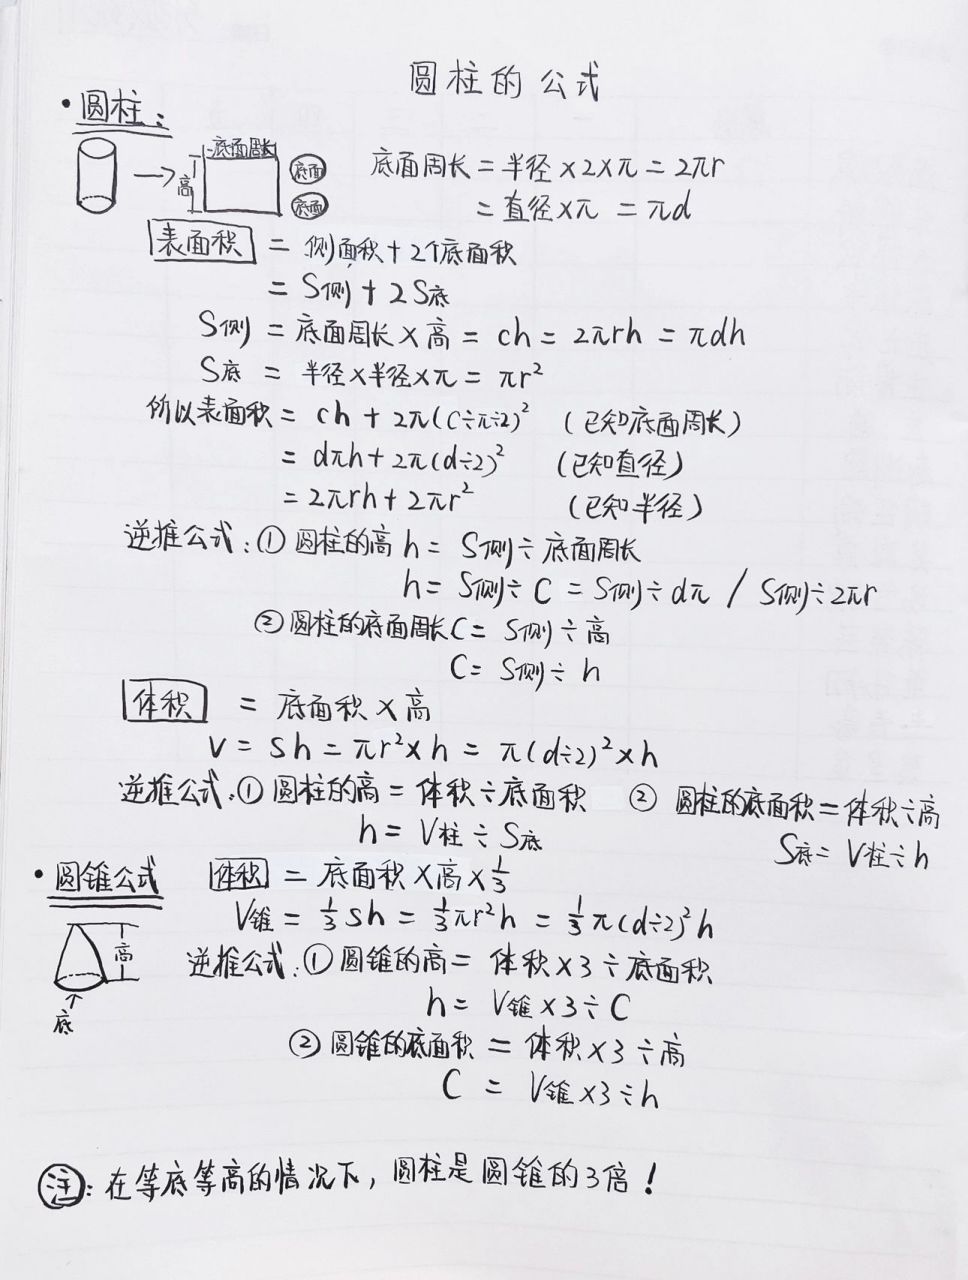 圆柱的公式
·圆柱：
底面周长
高
底面
底面
底面周长=半径×2×π=2πr
=直径×π=πd
表面积=侧面积+2个底面积
=S侧+2S底
S侧=底面周长×高=ch=2πrh=πdh
S底=半径×半径×π=πr²
所以表面积=ch+2π(C÷π÷2)² (已知底面周长)
=dπh+2π(d÷2)² (已知直径)
=2πrh+2πr² (已知半径)
逆推公式：①圆柱的高h=S侧÷底面周长
h=S侧÷C=S侧÷dπ/S侧÷2πr
②圆柱的底面周长C=S侧÷高
C=S侧÷h
体积=底面积×高
V=sh=πr²×h=π(d÷2)²×h
逆推公式：①圆柱的高=体积÷底面积 ②圆柱的底面积=体积÷高
h=V柱÷S底 S底=V柱÷h
·圆锥公式 体积=底面积×高×1/3
V锥=1/3sh=1/3πr²h=1/3π(d÷2)²h
高
底
逆推公式：①圆锥的高=体积×3÷底面积
h=V锥×3÷C
②圆锥的底面积=体积×3÷高
C=V锥×3÷h
注：在等底等高的情况下，圆柱是圆锥的3倍！